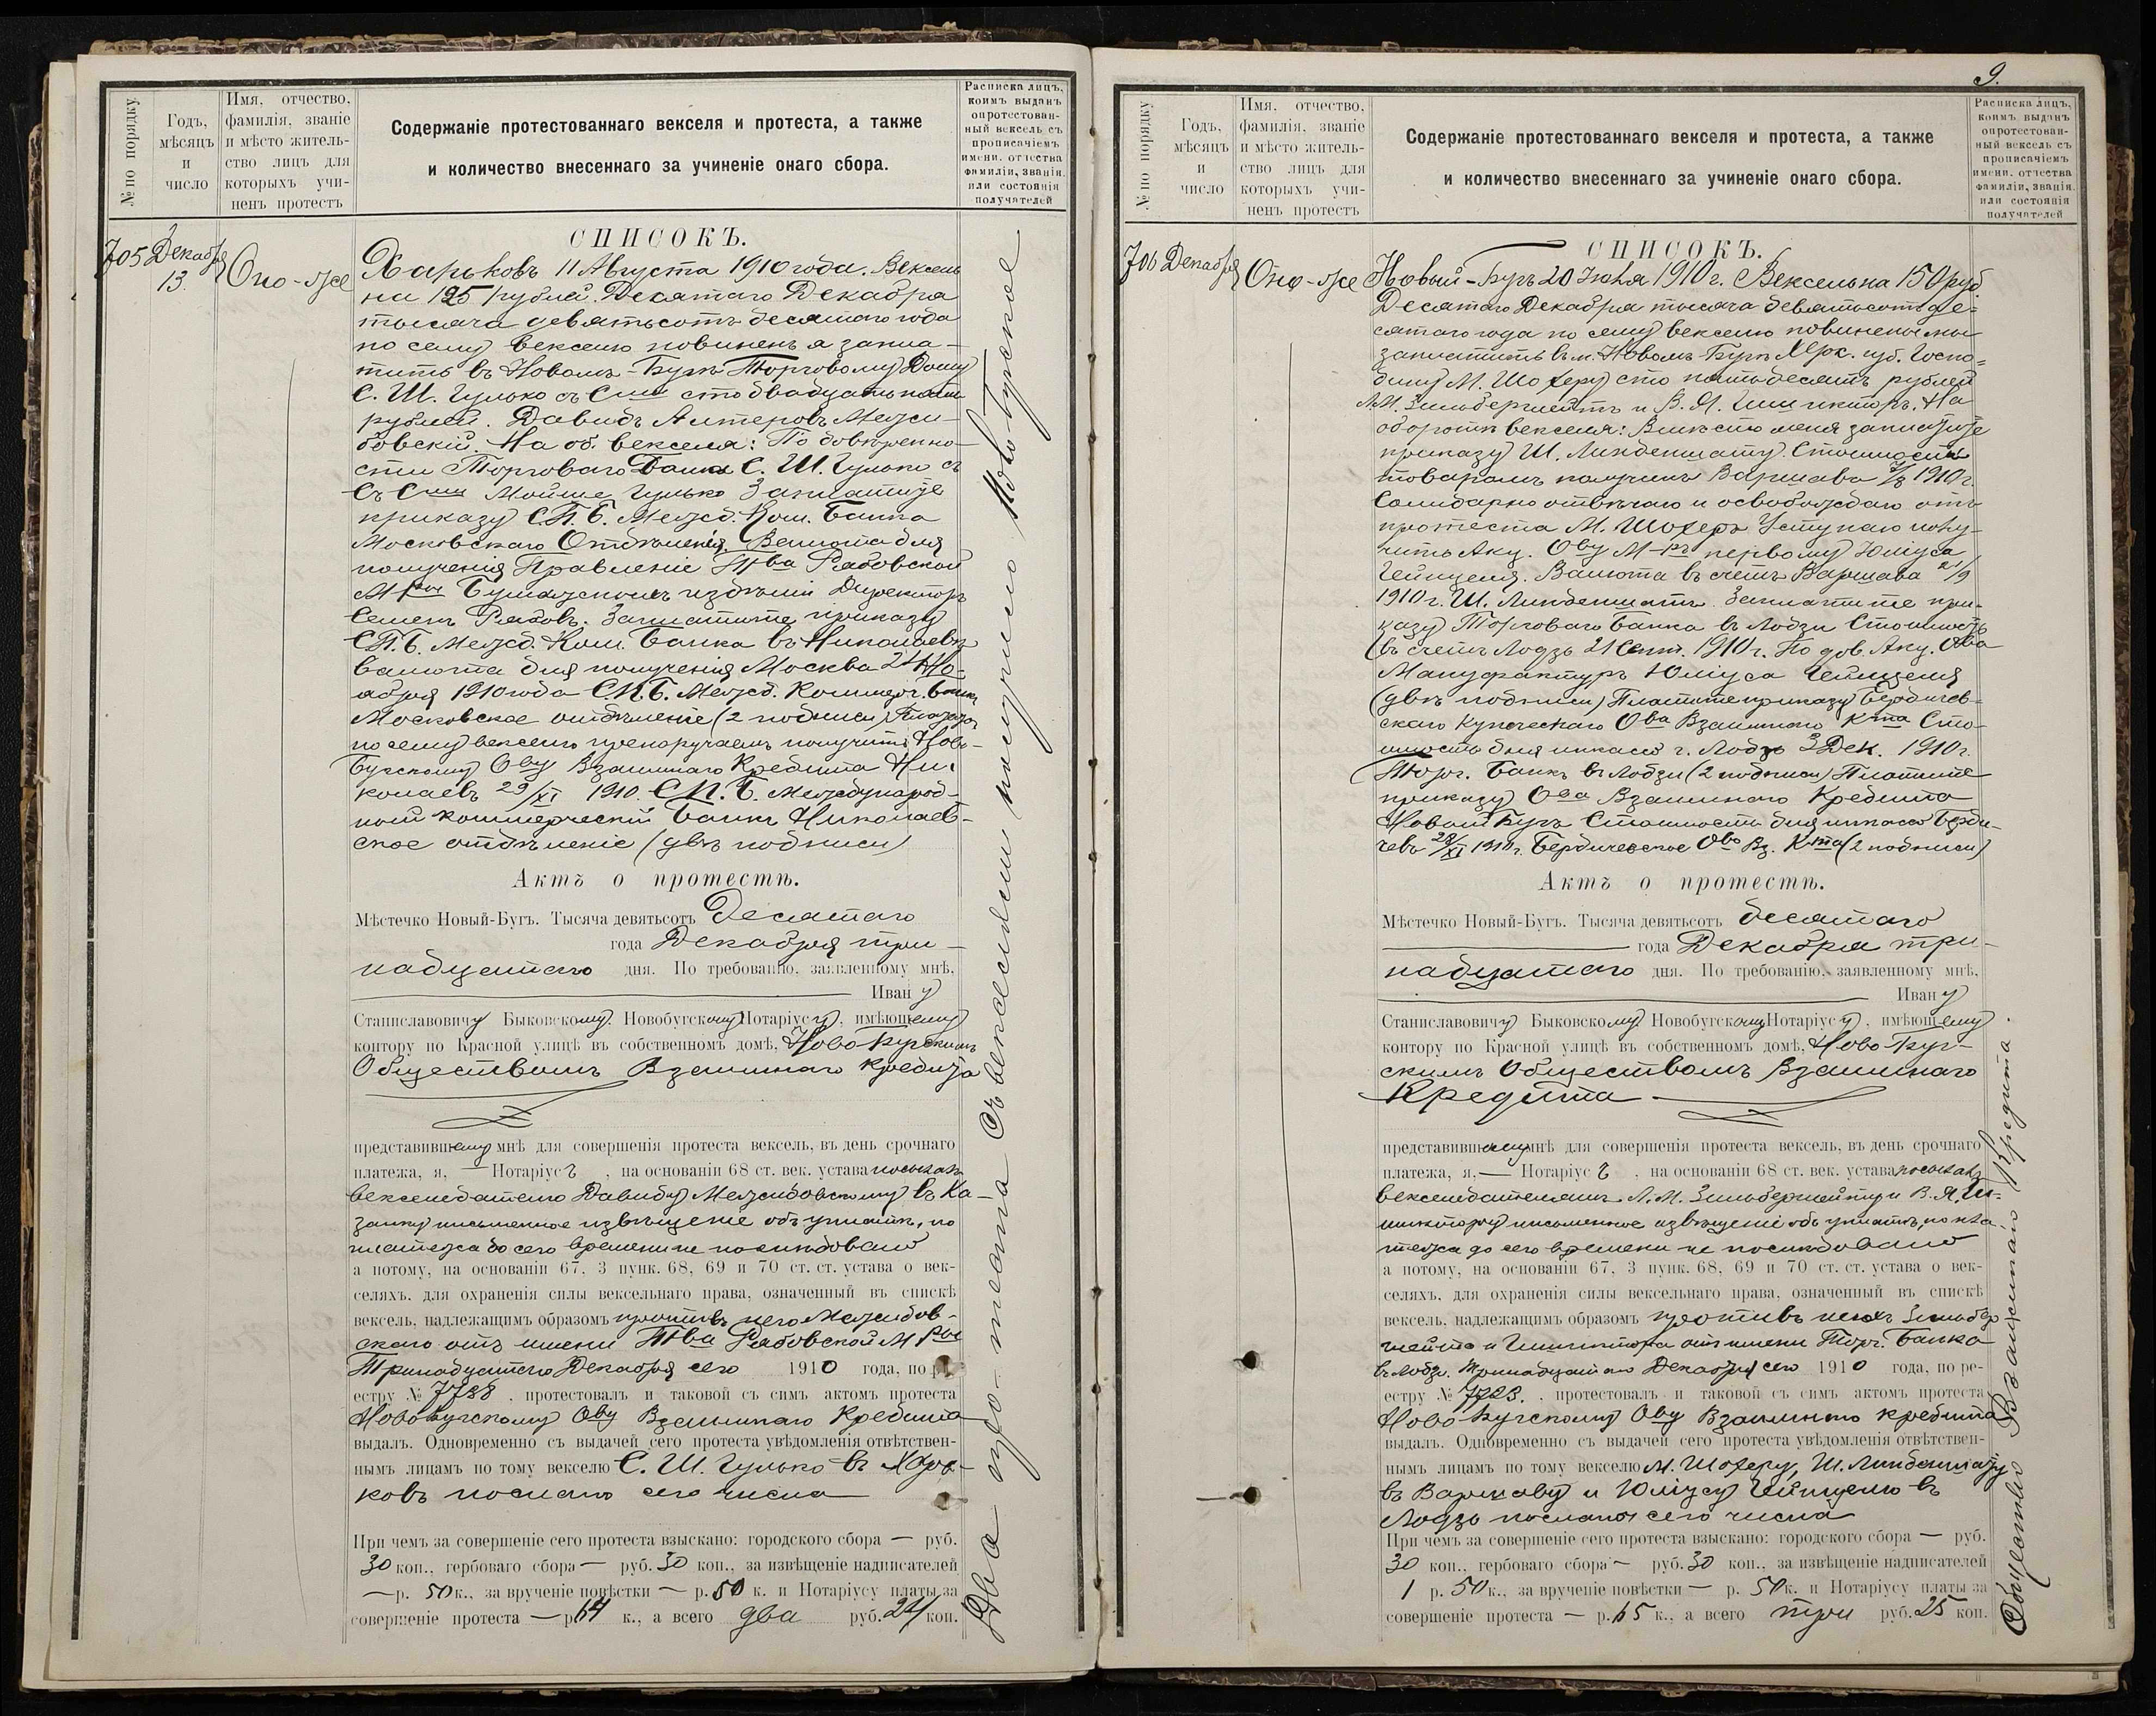 № по порядку
Годъ,
мѣсяцъ
и
число
Имя, отчество,
фамилія, званіе
и мѣсто житель-
ство лицъ для
которыхъ учи-
ненъ протестъ
Содержаніе протестованнаго векселя и протеста, а также
и количество внесеннаго за учиненіе онаго сбора.
Расписка лицъ,
коимъ выданъ
опротестован-
ный вексель съ
прописаніемъ
имени, отчества
фамиліи, званія,
или состоянія
получателей
705 Декабря
13.
Оно-же
СПИСОКЪ.
Харьковъ 11 Августа 1910 года. Вексель
на 125 рублей. Десятаго Декабря
тысяча девятьсотъ десятаго года
по сему векселю повиненъ я запла-
тить въ Новомъ-Бугѣ Торговому Дому
С. Ш. Гулько съ С-ми сто двадцать пять
рублей. Давидъ Алтеровъ Межи-
бовскій. На об. векселя: По довѣренно-
сти Торговаго Дома С. Ш. Гулько съ
Съ С-ми Мойше Гулько Заплатите
приказу С.П.Б. Межд. Ком. Банка
Московскаго Отдѣленія. Валюта для
полученія Правленіе Т-ва Рябовской
М-ры Бумажныхъ издѣлій Директоръ
Семенъ Рябовъ. Заплатите приказу
С.П.Б. Межд. Ком. Банка въ Николаевѣ
валюта для полученія Москва 24 Но-
ября 1910 года С.П.Б. Межд. Коммерч. Банкъ
Московское отдѣленіе (2 подписи) Платежъ
по сему векселю препоручаемъ получить Ново-
Бугскому О-ву Взаимнаго Кредита Ни-
колаевъ 29/XI 1910. С.П.Б. Международ-
ный Коммерческій Банкъ Николаев-
ское отдѣленіе (двѣ подписи)
Актъ о протестѣ.
Мѣстечко Новый-Бугъ. Тысяча девятьсотъ Десятаго
года Декабря три-
надцатаго дня. По требованію, заявленному мнѣ,
Ивану
Станиславовичу Быковскому, Новобугскому Нотаріусу, имѣющему
контору по Красной улицѣ въ собственномъ домѣ, Ново Бугскимъ
Обществомъ Взаимнаго Кредита
представившему мнѣ для совершенія протеста вексель, въ день срочнаго
платежа, я, — Нотаріусъ, на основаніи 68 ст. век. устава посылалъ
векселедателю Давиду Межибовскому въ Ка-
занку письменное извѣщеніе объ уплатѣ, но
платежа до сего времени не послѣдовало
а потому, на основаніи 67, 3 пунк. 68, 69 и 70 ст. ст. устава о век-
селяхъ, для охраненія силы вексельнаго права, означенный въ спискѣ
вексель, надлежащимъ образомъ противъ него Межибов-
скаго отъ имени Т-ва Рябовской М-ры
Тринадцатаго Декабря сего 1910 года, по ре-
естру № 7728, протестовалъ и таковой съ симъ актомъ протеста
Новобугскому О-ву Взаимнаго Кредита
выдалъ. Одновременно съ выдачей сего протеста увѣдомленія отвѣтствен-
нымъ лицамъ по тому векселю С. Ш. Гулько въ Харь-
ковъ послано сего числа
При чемъ за совершеніе сего протеста взыскано: городского сбора — руб.
30 коп., гербоваго сбора — руб. 30 коп., за извѣщеніе надписателей
— р. 50 к., за врученіе повѣстки — р. 50 к. и Нотаріусу платы за
совершеніе протеста — р. 64 к., а всего два руб. 24 коп.
Два изъ-
Съ векселемъ получило Ново-Бугское
9.
№ по порядку
Годъ,
мѣсяцъ
и
число
Имя, отчество,
фамилія, званіе
и мѣсто житель-
ство лицъ для
которыхъ учи-
ненъ протестъ
Содержаніе протестованнаго векселя и протеста, а также
и количество внесеннаго за учиненіе онаго сбора.
Расписка лицъ,
коимъ выданъ
опротестован-
ный вексель съ
прописаніемъ
имени, отчества
фамиліи, званія,
или состоянія
получателей
706 Декабря
Оно-же
СПИСОКЪ.
Новый-Бугъ 20 Іюня 1910 г. Вексель на 150 руб.
Десятаго Декабря тысяча девятьсотъ де-
сятаго года по сему векселю повинены мы
заплатить въ м. Новомъ-Бугѣ Херс. губ. Госпо-
дину М. Шохеру сто пятьдесятъ рублей
Л. М. Зильбершейтъ и В. Я. На
оборотѣ векселя: Вмѣсто меня заплатите
приказу Ш. Линденшату. Стоимость
товаромъ получилъ Варшава 1910 г.
Солидарно отвѣчаю и освобождаю отъ
протеста М. Шохеръ Уступаю полу-
чить Акц. О-ву М-ръ первому Юліуса
Гейнцеля. Валюта въ счетъ Варшава 21/9
1910 г. Ш. Линденшатъ. Заплатите при-
казу Торговаго Банка въ Лодзи Стоимость
въ счетъ Лодзь 21 Сент. 1910 г. По дов. Акц. О-ва
Мануфактуръ Юліуса Гейнцеля
(двѣ подписи) Платите приказу Бердичев-
скаго Купеческаго О-ва Взаимнаго К-та Сто-
имость для инкассо г. Лодзь 3 Дек. 1910 г.
Торг. Банкъ въ Лодзи (2 подписи) Платите
приказу О-ва Взаимнаго Кредита
Новый Бугъ Стоимость для инкассо Берди-
чевъ 28/XI 1910 г. Бердичевское О-во Вз. К-та (2 подписи)
Актъ о протестѣ.
Мѣстечко Новый-Бугъ. Тысяча девятьсотъ десятаго
года Декабря три-
надцатаго дня. По требованію, заявленному мнѣ,
Ивану
Станиславовичу Быковскому Новобугскому Нотаріусу, имѣющему
контору по Красной улицѣ въ собственномъ домѣ, Ново Буг-
скимъ Обществомъ Взаимнаго
Кредита
представившему мнѣ для совершенія протеста вексель, въ день срочнаго
платежа, я, — Нотаріусъ, на основаніи 68 ст. век. устава посылалъ
векселедателямъ Л. М. Зильбершейту и В. Я.
письменное извѣщеніе объ уплатѣ, но пла-
тежа до сего времени не послѣдовало
а потому, на основаніи 67, 3 пунк. 68, 69 и 70 ст. ст. устава о век-
селяхъ, для охраненія силы вексельнаго права, означенный въ спискѣ
вексель, надлежащимъ образомъ противъ нихъ Зильбер-
шейта и отъ имени Торг. Банка
въ Лодзи. Тринадцатаго Декабря сего 1910 года, по ре-
естру № 7723, протестовалъ и таковой съ симъ актомъ протеста
Ново Бугскому О-ву Взаимнаго кредита
выдалъ. Одновременно съ выдачей сего протеста увѣдомленія отвѣтствен-
нымъ лицамъ по тому векселю М. Шохеру, Ш. Линденшату
въ Варшаву и Юліусу Гейнцелю въ
Лодзь послано сего числа
При чемъ за совершеніе сего протеста взыскано: городского сбора — руб.
30 коп., гербоваго сбора — руб. 30 коп., за извѣщеніе надписателей
1 р. 50 к., за врученіе повѣстки — р. 50 к. и Нотаріусу платы за
совершеніе протеста — р. 65 к., а всего три руб. 25 коп.
Общество Взаимнаго Кредита.